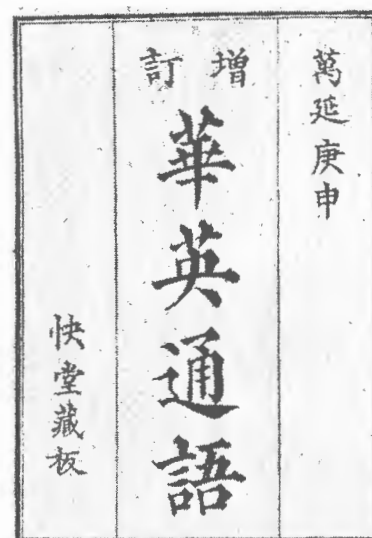 萬延庚申
增訂
華英通語
快堂藏板